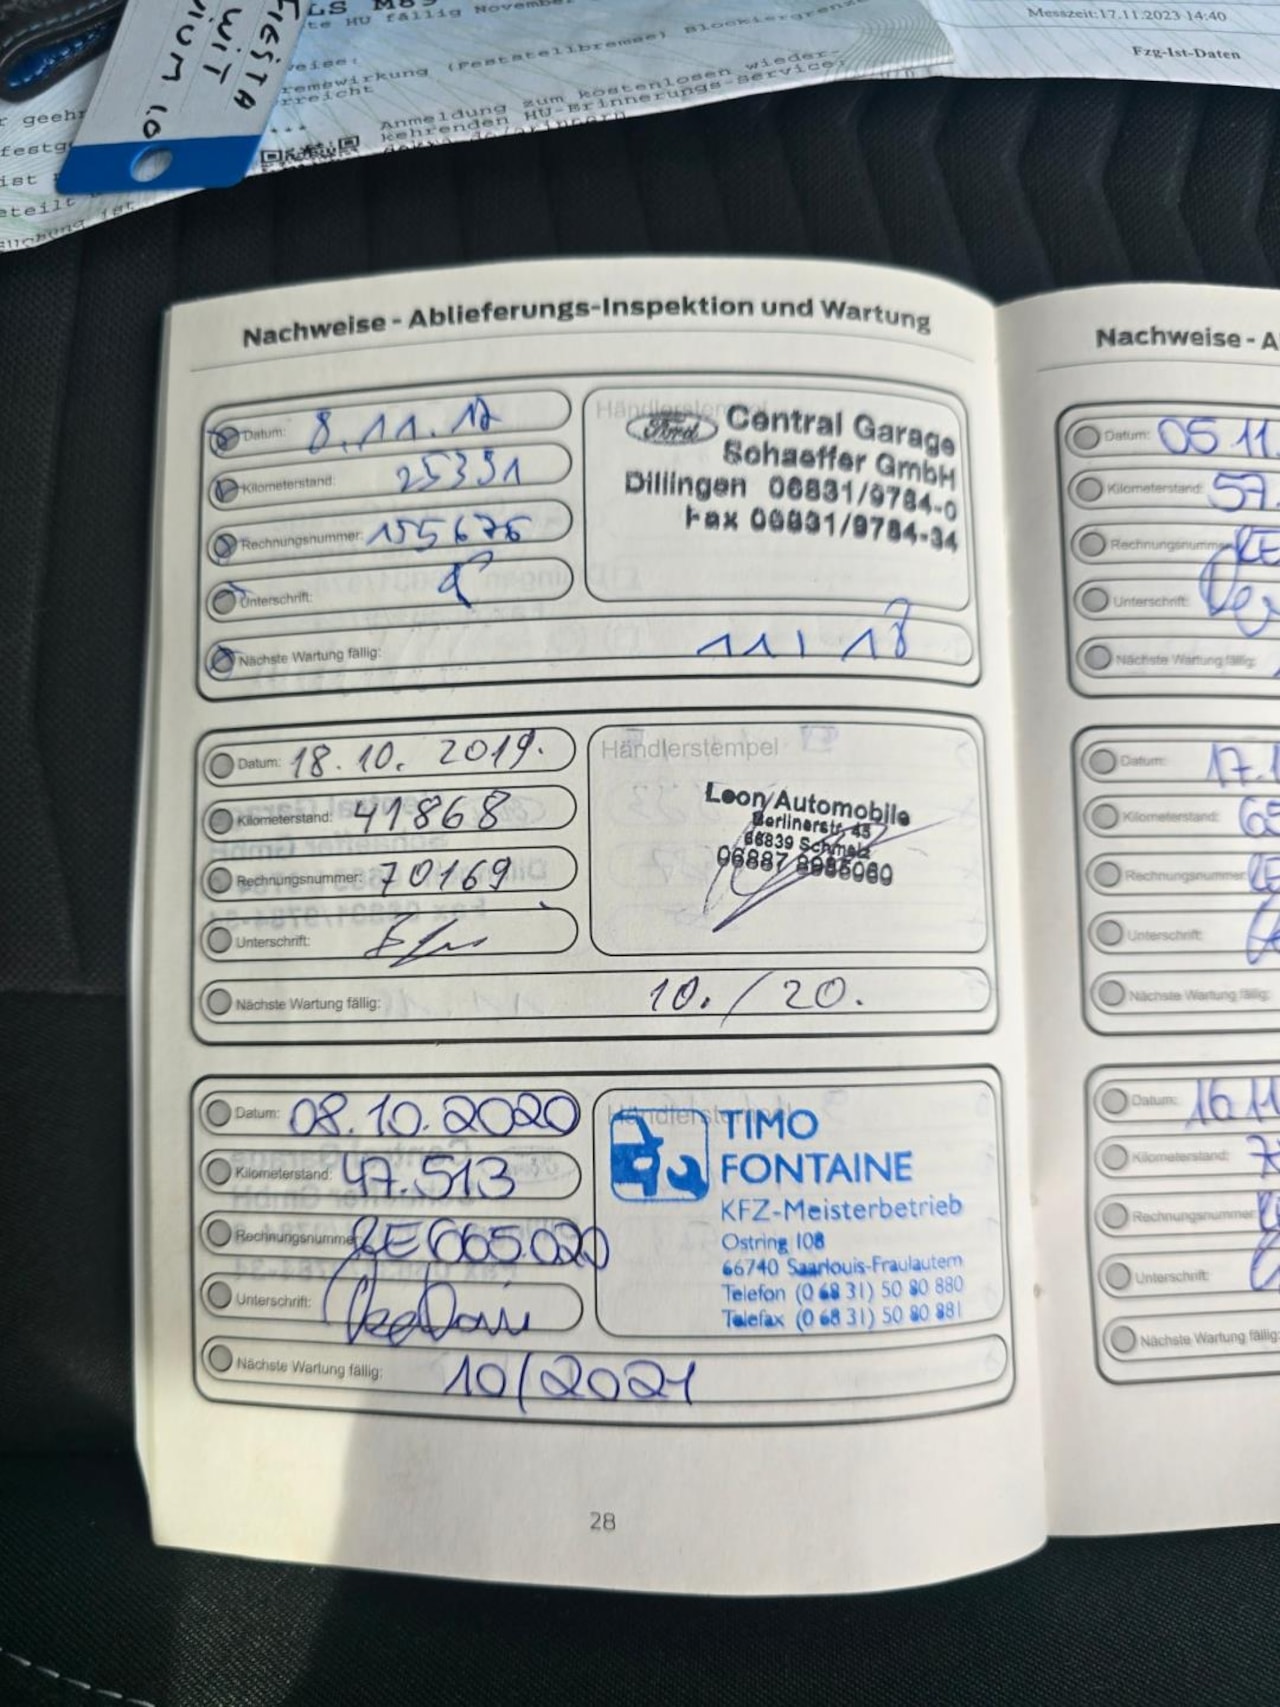 FIESTA
WIT
IUM 1.0
LS M89
te HU fällig November
weise:
remswirkung (Feststellbremse) Blockiergrenze
rreicht
Anmeldung zum kostenlosen wieder-
kehrenden HU-Erinnerungs-Service:
r geehr
festg
ist
eteilt
Messzeit:17.11.2023 14:40
Fzg-Ist-Daten
Nachweise - Ablieferungs-Inspektion und Wartung
Datum: 8.11.17
Kilometerstand: 25391
Rechnungsnummer: 155676
Unterschrift:
Nächste Wartung fällig: 11 / 18
Händlerstempel
Ford Central Garage
Schaeffer GmbH
Dillingen 06831/9784-0
Fax 06831/9784-34
Datum: 18.10. 2019.
Kilometerstand: 41868
Rechnungsnummer: 70169
Unterschrift:
Nächste Wartung fällig: 10. / 20.
Händlerstempel
Leon Automobile
Berlinerstr. 45
66839 Schmelz
06887 8985060
Datum: 08.10.2020
Kilometerstand: 47.513
Rechnungsnummer RE665.020
Unterschrift:
Nächste Wartung fällig: 10/2021
Händlerstempel
TIMO
FONTAINE
KFZ-Meisterbetrieb
Ostring 108
66740 Saarlouis-Fraulautern
Telefon (0 68 31) 50 80 880
Telefax (0 68 31) 50 80 881
28
Nachweise - A
Datum: 05 11.
Kilometerstand: 57.
Rechnungsnumme RE
Unterschrift:
Nächste Wartung fällig:
Datum: 17.1
Kilometerstand: 65
Rechnungsnummer RE
Unterschrift:
Nächste Wartung fällig:
Datum: 16.11
Kilometerstand: 7
Rechnungsnummer
Unterschrift:
Nächste Wartung fällig: